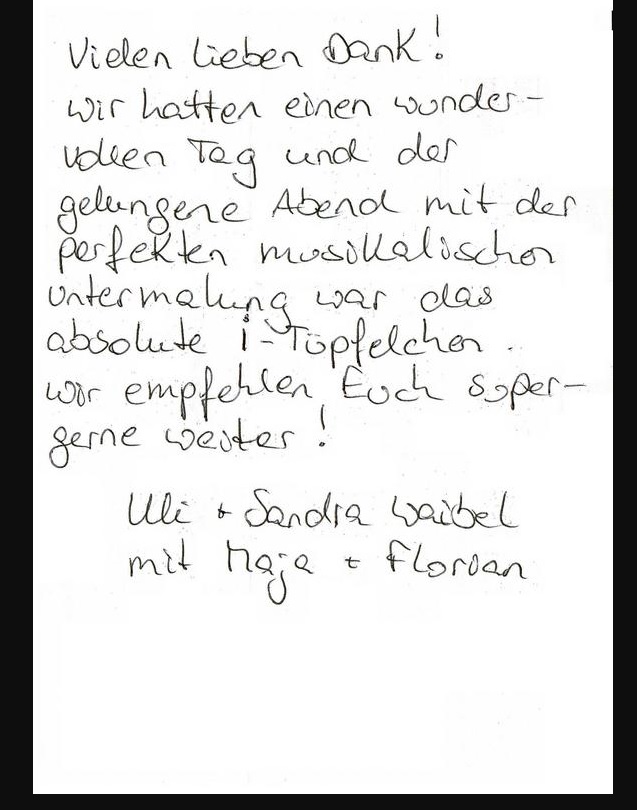 Vielen lieben Dank!
Wir hatten einen wunder-
vollen Tag und der
gelungene Abend mit der
perfekten musikalischen
Untermalung war das
absolute i-Töpfelchen.
Wir empfehlen Euch super-
gerne weiter!
Uli + Sandra Waibel
mit Maja + Florian